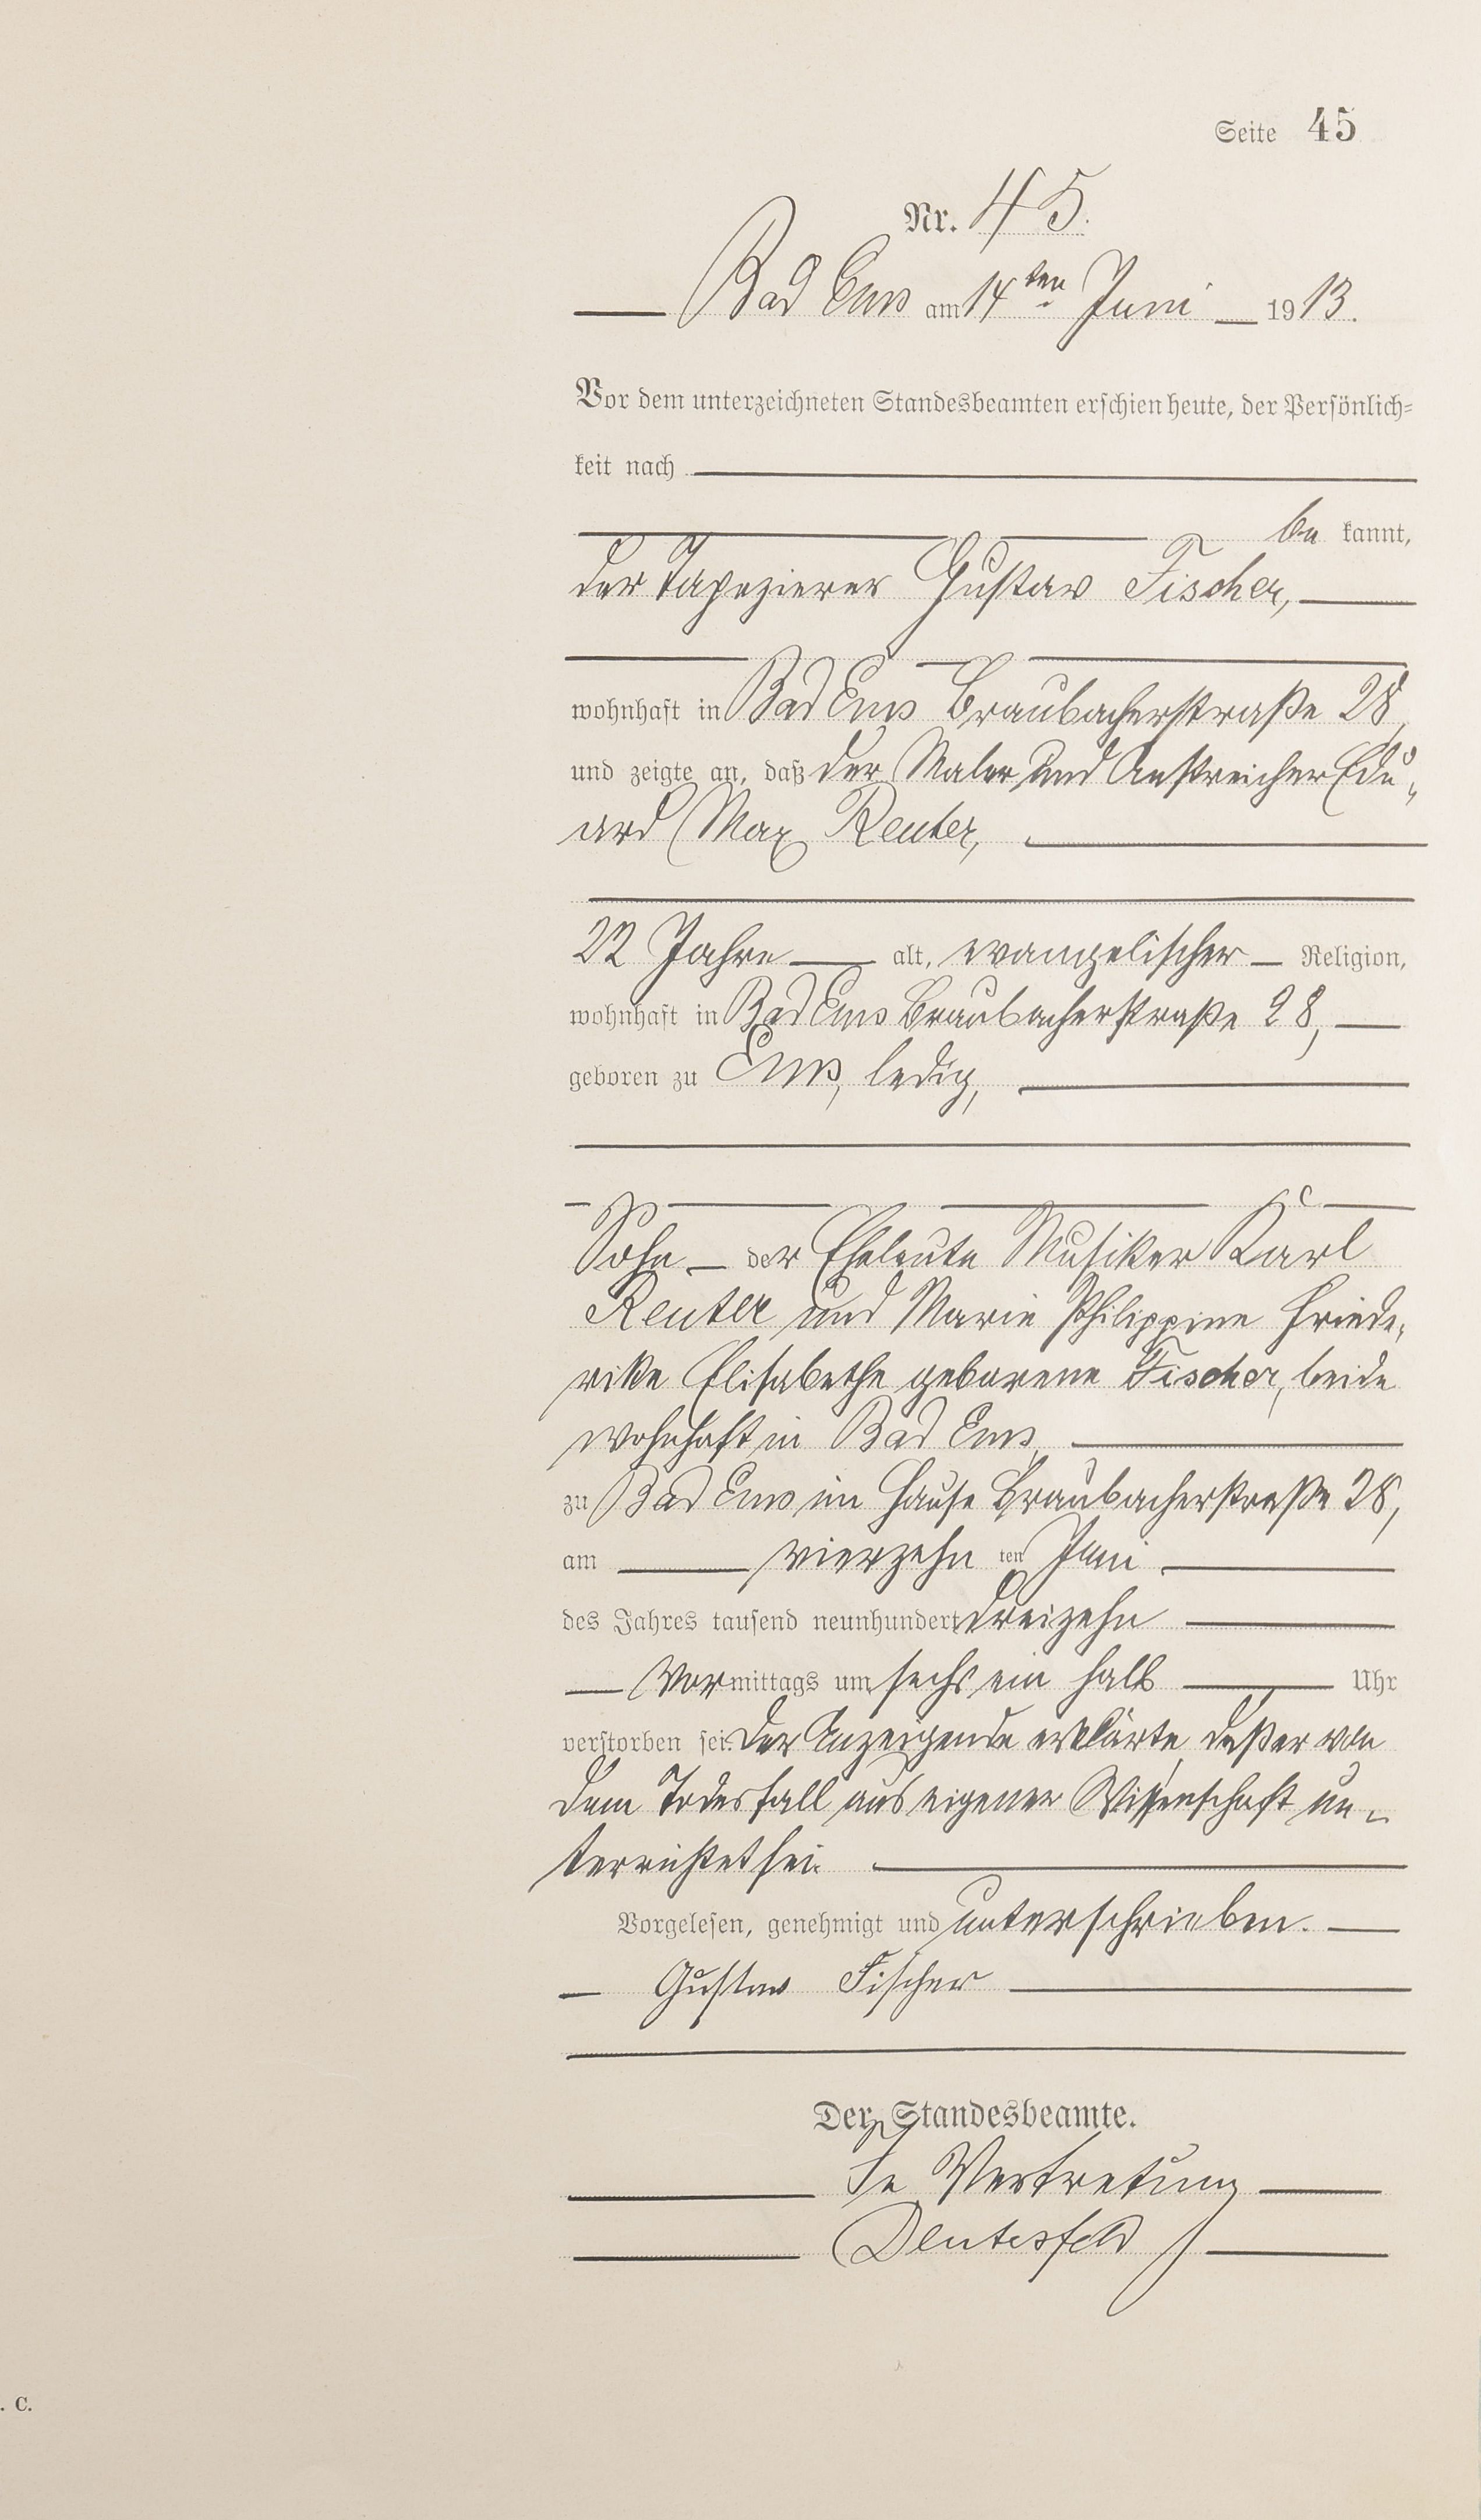 Seite 45
Nr. 45.
Bad Ems am 14ten Juni 1913.
Vor dem unterzeichneten Standesbeamten erschien heute, der Persönlich=
keit nach
be kannt,
der Tapezierer Gustav Fischer,
wohnhaft in Bad Ems Braubacherstraße 28,
und zeigte an, daß der Maler und Anstreicher Edu-
ard Max Reuter,
22 Jahre alt, evangelischer Religion,
wohnhaft in Bad Ems Braubacherstraße 28,
geboren zu Ems, ledig,
Sohn der Eheleute Musiker Karl
Reuter und Marie Philippine Friede-
rike Elisabethe geborene Fischer, beide
wohnhaft in Bad Ems,
zu Bad Ems im Hause Braubacherstraße 28,
am vierzehn ten Juni
des Jahres tausend neunhundert dreizehn
Vormittags um sechs ein halb Uhr
verstorben sei. Der Anzeigende erklärte, daß er von
dem Todesfall aus eigener Wissenschaft un-
terrichtet sei.
Vorgelesen, genehmigt und unterschrieben.
Gustav Fischer
Der Standesbeamte.
In Vertretung
. C.